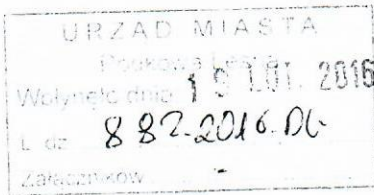 URZĄD MIASTA
Podkowa Leśna
Wpłynęło dnia 19 LUT. 2016
L. dz. 882.2016.DG
Załączników -